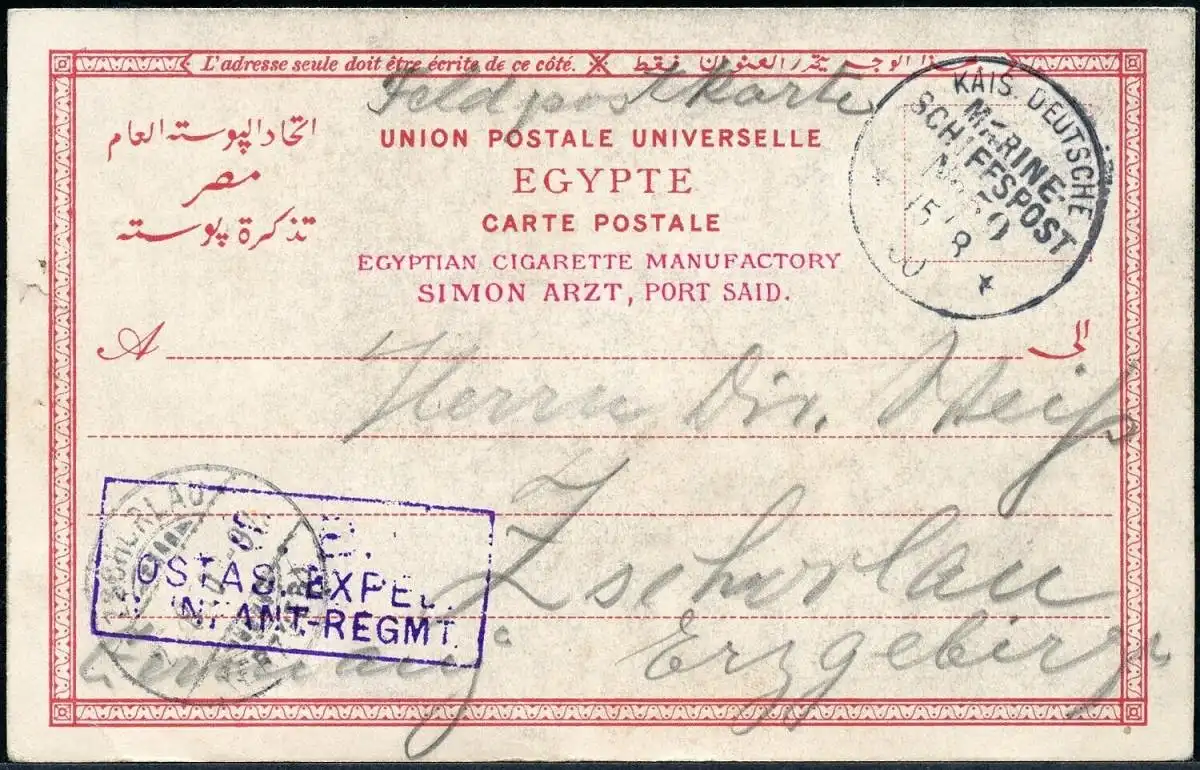 L'adresse seule doit être écrite de ce côté.
Feldpostkarte
اتحاد البوسته العام
مصر
تذكرة بوسته
UNION POSTALE UNIVERSELLE
EGYPTE
CARTE POSTALE
EGYPTIAN CIGARETTE MANUFACTORY
SIMON ARZT, PORT SAID.
KAIS. DEUTSCHE
MARINE-
SCHIFFSPOST
No
15 8
00
A
الى
Herrn Dir. Weiß
Zschorlau
Erzgebirge
ZSCHORLAU
OSTAS. EXPED.
INFANT.-REGMT.